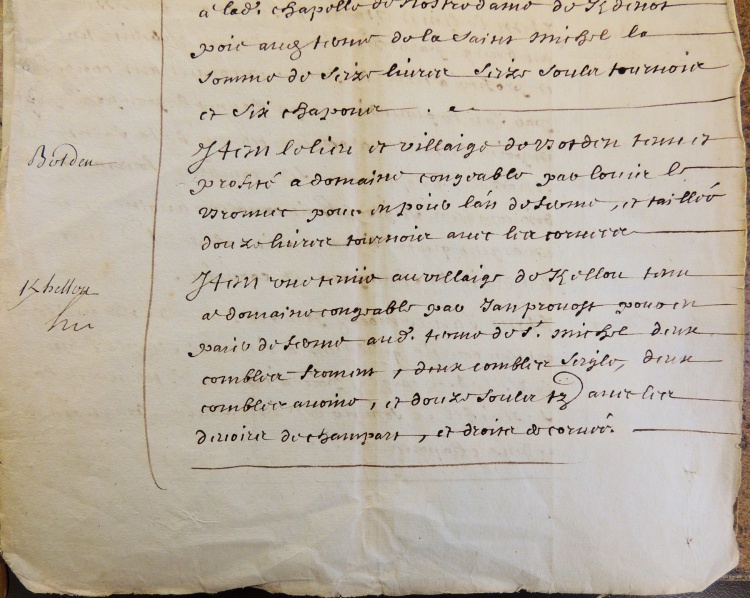 a lad. chapelle de Nostre dame de Kdenot
poie aud terme de la Saint michel la
somme de seize livres seize soulz tournois
et six chapons .
Botden
Item le lieu et villaige de Botden tenu et
profité a domaine congeable par louis le
pour en poier l'an de ferme, et taillée
douze livres tournois avec les corvees
Khellou
Item une tenue au villaige de Kellou tenu
a domaine congeable par Jan prouost pour en
paier de ferme aud. terme de St. michel deux
combles froment, deux combles seigle, deux
combles avoine, et douze soulz tz avec les
devoirs de champart, et droits de corvée.